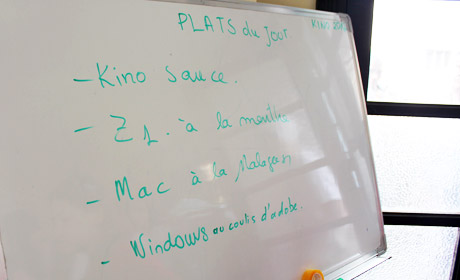 PLATS du JOUR.
KINO
- Kino Sauce.
- Z1. à la menthe
- Mac à la
- Windows au coulis d'adobe.